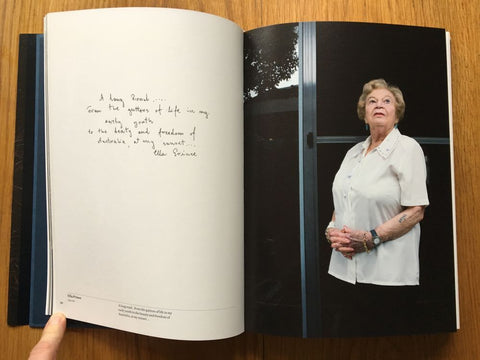 A Long Road.....
From the gutters of life in my
early youth
to the beauty and freedom of
Australia, at my sunset...
Ella Prince
Ella Prince
A long road... From the gutters of life in my
early youth to the beauty and freedom of
Australia, at my sunset...